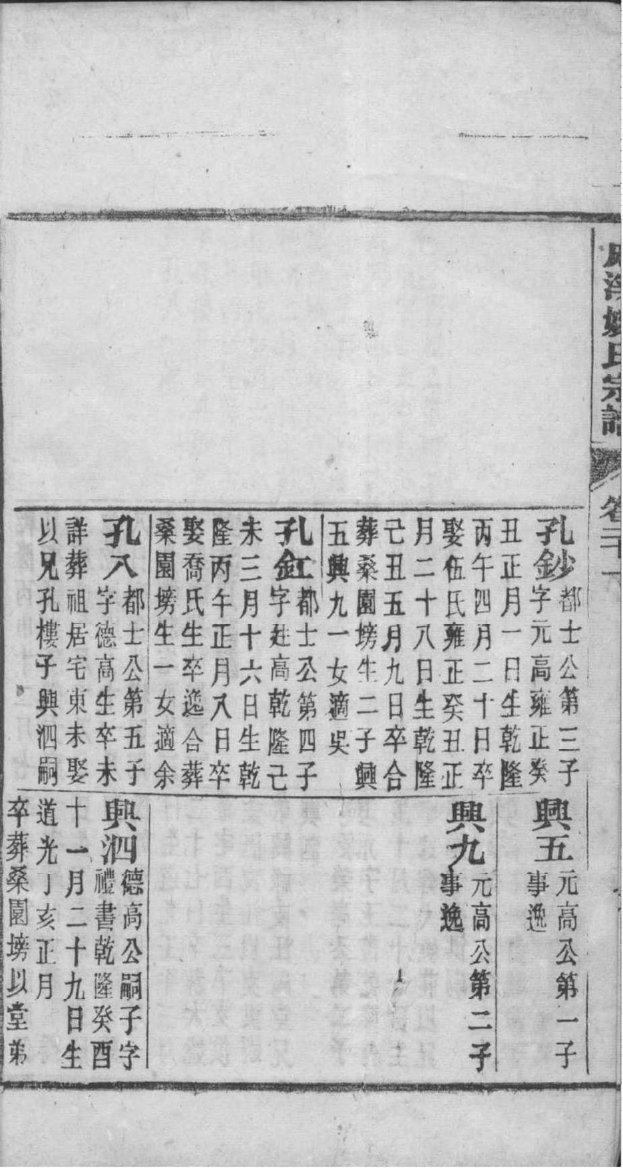 氏宗譜
孔鈔都士公第三子
字元高雍正癸
丑正月一日生乾隆
丙午四月二十日卒
娶伍氏雍正癸丑正
月二十八日生乾隆
己丑五月九日卒合
葬桑園塝生二子興
五興九一女適吳
孔釭都士公第四子
字廷高乾隆己
未三月十六日生乾
隆丙午正月八日卒
娶喬氏生卒逸合葬
桑園塝生一女適余
孔八都士公第五子
字德高生卒未
詳葬祖居宅東未娶
以兄孔樓子興泗嗣
興五元高公第一子
事逸
興九元高公第二子
事逸
興泗德高公嗣子字
禮書乾隆癸酉
十一月二十九日生
道光丁亥正月
卒葬桑園塝以堂弟